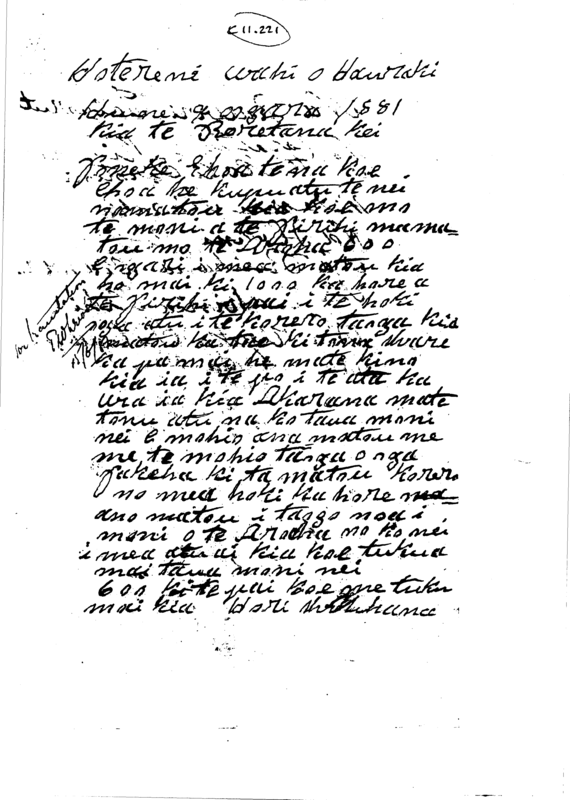 C 11.221
Hoterene wahi o Hauraki
Hune 1881
kia te Poretana kei
Poneke Ehoa tena koe
Ehoa he kupu atu tenei
na matou kia koe mo
te moni a te Pirihi mama=
tou mo te Aroha 600
Engari i mea matou kia
ho mai ki 1000 kahore a
te Pirihi i pai i te hoki
noa atu i te korero tanga kia
matou ka hoe ki tona whare
ka pa mai he mate kino
kia ia i te po i te ata ka
ura ia kia Akarana mate
tonu atu na ko taua moni
nei E mohio ana matou me
me te mohio tanga o nga
Pakeha ki ta matou korero
no mea hoki kahore
ano matou i tango noa i
moni o te Aroha no konei
i mea atu ai kia koe tukua
mai taua moni nei
600 kite pai koe me tuku
mai kia Hori